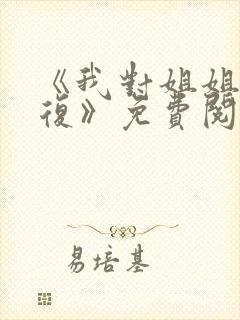 《我對姐姐
復》免費閱
易培基